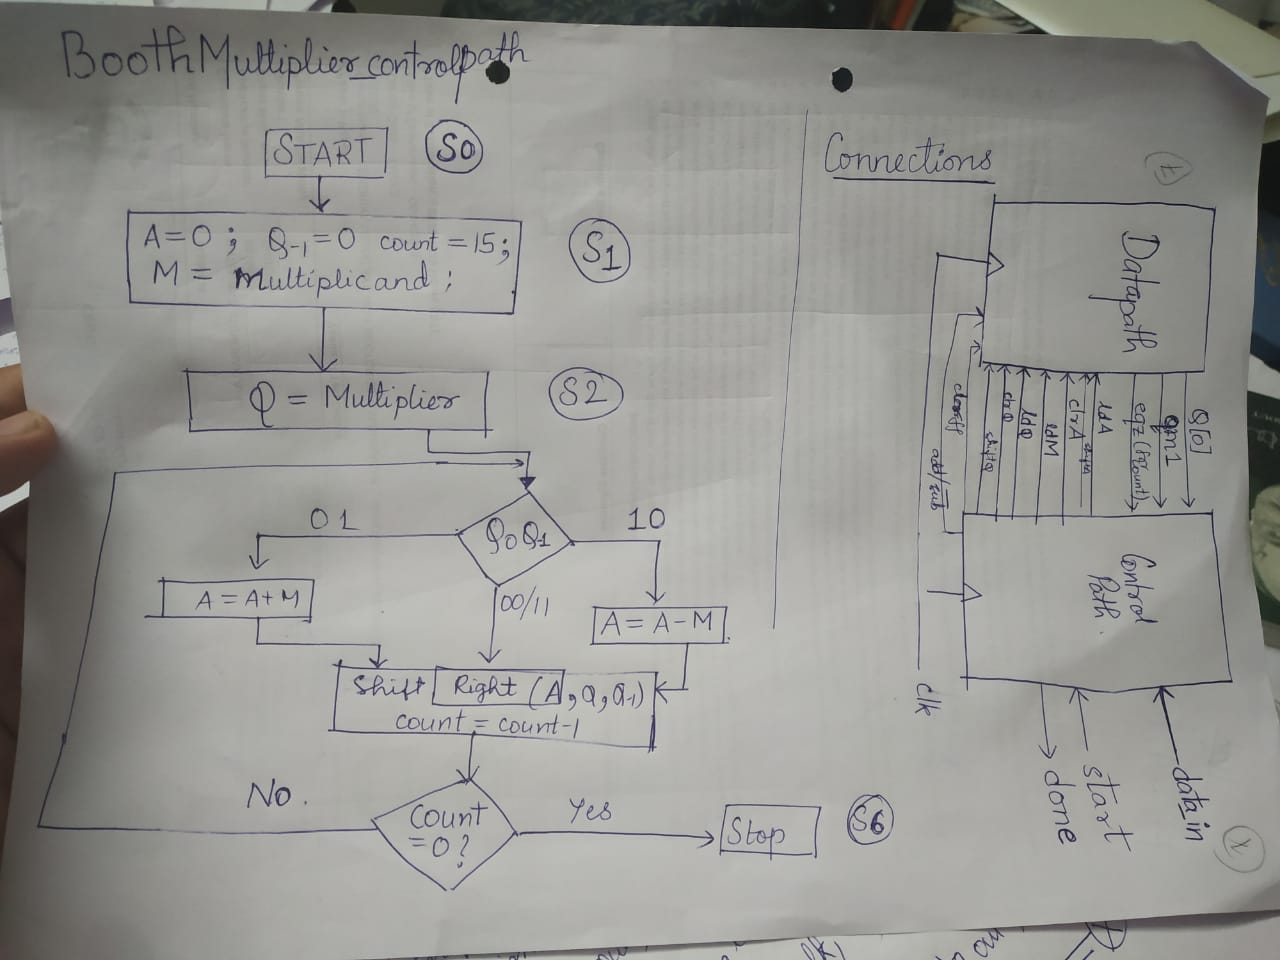 Booth Multiplier_controlpath
START
S0
A=0; Q-1=0 count=15;
M = Multiplicand;
S1
Q = Multiplier
S2
Q0Q-1
01
10
00/11
A = A+M
A = A-M
Shift Right (A, Q, Q-1)
count = count-1
Count
=0?
No.
Yes
Stop
S6
Connections
Datapath
Q[0]
qm1
eqz (for count)
ldA
clrA
ldM
ldQ
clrQ
shftQ
clrff
add/sub
Control
Path.
clk
data_in
start
done